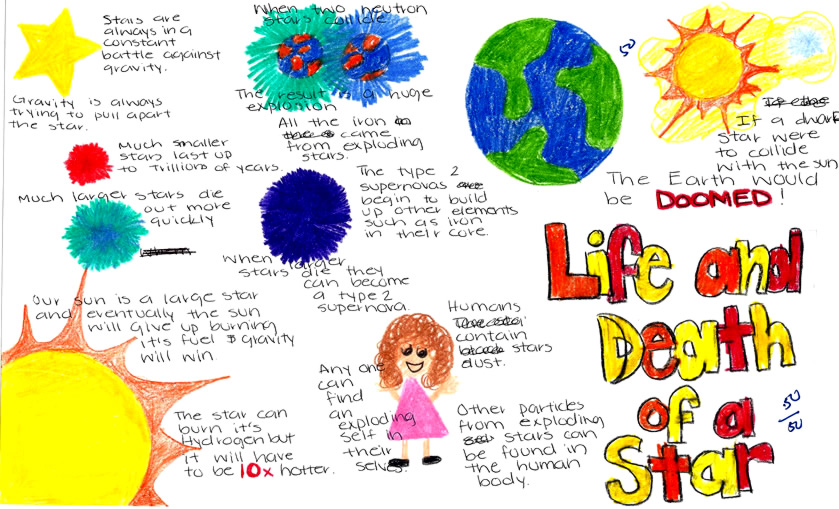 Stars are
always in a
constant
battle against
gravity.
Gravity is always
trying to pull apart
the star.
Much smaller
stars last up
to Trillions of years.
Much larger stars die
out more
quickly
When two neutron
stars collide
The result is a huge
explosion
All the iron
came
from exploding
stars.
The type 2
supernovas
begin to build
up other elements
such as iron
in their core.
When larger
stars die they
can become
a type 2
supernova.
50
If a dwarf
star were
to collide
with the sun
The Earth would
be DOOMED!
Our sun is a large star
and eventually the sun
will give up burning
it's fuel & gravity
will win.
The star can
burn it's
Hydrogen but
it will have
to be 10x hotter.
Any one
can
find
an
exploding
self in
their
selves.
Humans
contain
stars
dust.
Other particles
from exploding
stars can
be found in
the human
body.
Life and
Death
of a
Star
50
50